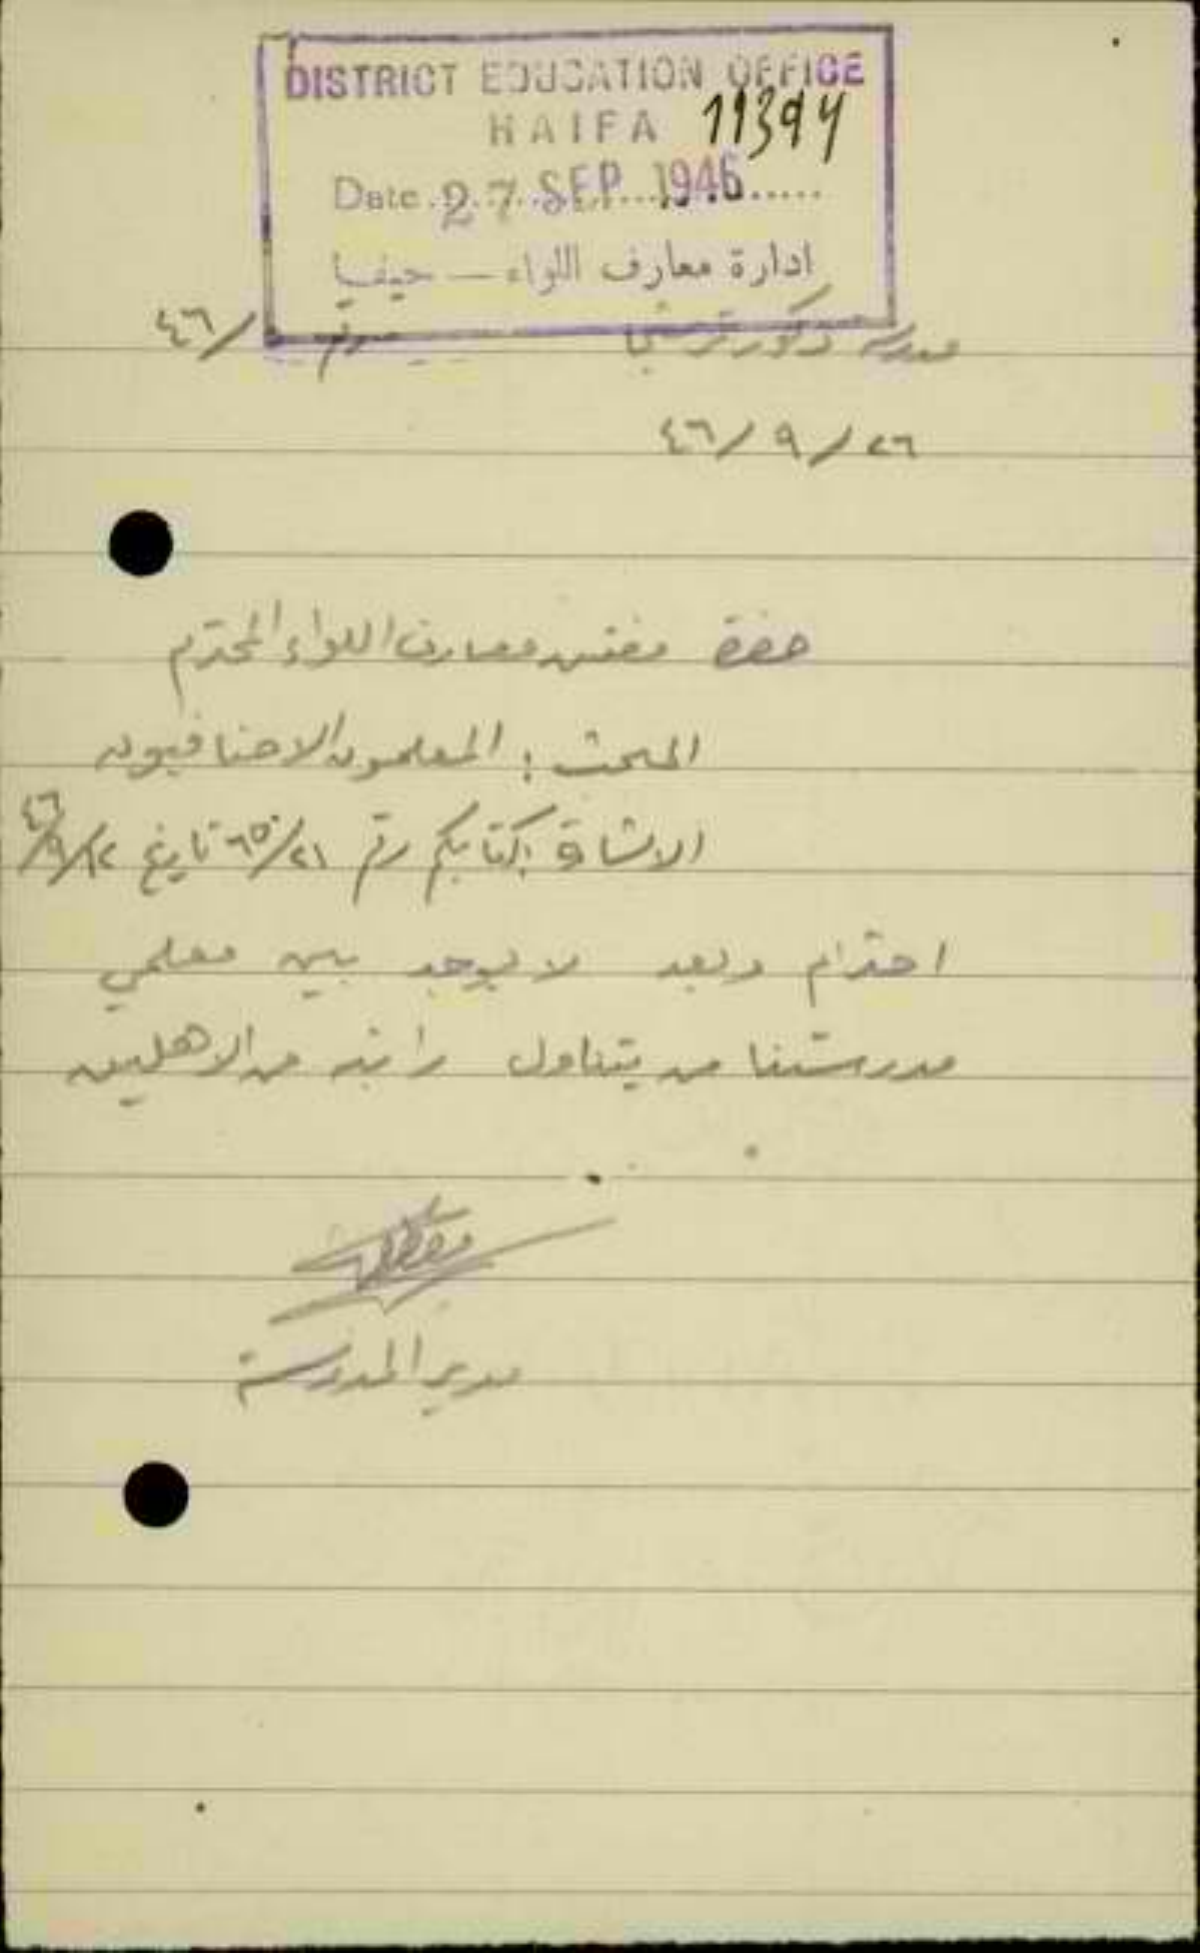 DISTRICT EDUCATION OFFICE
HAIFA 11394
Date 27 SEP 1946
ادارة معارف اللواء — حيفا
مدرسة ذكور ترشيحا رقم /٤٦
٢٦/٩/٤٦
حضرة مفتش معارف اللواء المحترم
المبحث : المعلمون الاضافيون
الاشارة : كتابكم رقم ٦٥/٢١ تاريخ ١٢/٩/٤٦
احترام وبعد لا يوجد بين معلمي
مدرستنا من يتناول راتبه من الاهليين
.
مدير المدرسة